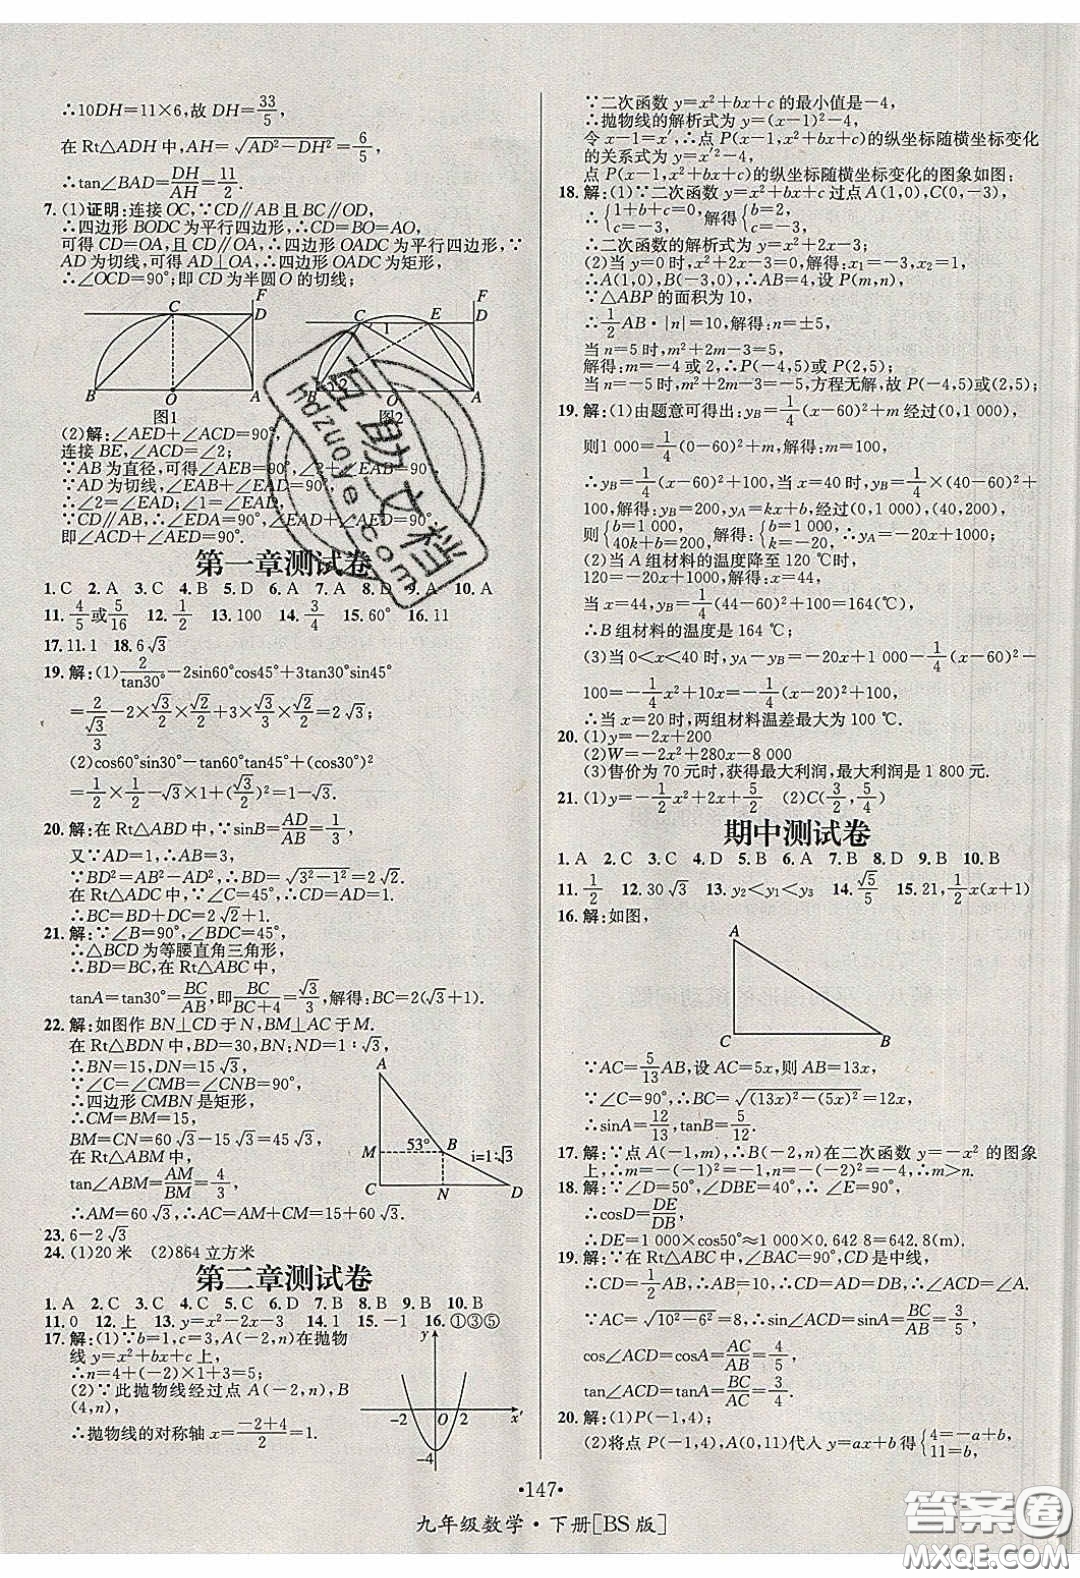 ∴10DH=11×6,故 DH=33/5,
在 Rt△ADH 中,AH=√(AD²-DH²)=6/5,
∴tan∠BAD=DH/AH=11/2.
7.(1)证明:连接 OC,∵CD∥AB 且 BC∥OD,
∴四边形 BODC 为平行四边形,∴CD=BO=AO,
可得 CD=OA,且 CD∥OA,∴四边形 OADC 为平行四边形,∵
AD 为切线,可得 AD⊥OA,∴四边形 OADC 为矩形,
∴∠OCD=90°;即 CD 为半圆 O 的切线;
C F D B O A
图1
C E F D 1 2 B O A
图2
(2)解:∠AED+∠ACD=90°,
连接 BE,∠ACD=∠1,
∵AB 为直径,可得∠AEB=90°,∠2+∠EAB=90°,
∵AD 为切线,∠EAB+∠EAD=90°,
∴∠2=∠EAD,∠1=∠EAD,
∵CD∥AB,∴∠EDA=90°,∠EAD+∠AED=90°,
即∠AED+∠ACD=90°.
第一章测试卷
1.C 2.A 3.C 4.B 5.D 6.A 7.A 8.D 9.A 10.A
11.4/5或5/16 12.1/2 13.100 14.3/4 15.60° 16.11
17.11.1 18.6√3
19.解:(1)2/tan30°-2sin60°cos45°+3tan30°sin45°
=2/(√3/3)-2×√3/2×√2/2+3×√3/3×√2/2=2√3;
(2)cos60°sin30°-tan60°tan45°+(cos30°)²
=1/2×1/2-√3×1+(√3/2)²=1-√3.
20.解:在 Rt△ABD 中,∵sinB=AD/AB=1/3,
又∵AD=1,∴AB=3,
∵BD²=AB²-AD²,∴BD=√(3²-1²)=2√2.
在 Rt△ADC 中,∵∠C=45°,∴CD=AD=1.
∴BC=BD+DC=2√2+1.
21.解:∵∠B=90°,∠BDC=45°,
∴△BCD 为等腰直角三角形,
∴BD=BC,在 Rt△ABC 中,
tanA=tan30°=BC/AB,即BC/(BC+4)=√3/3,解得:BC=2(√3+1).
22.解:如图作 BN⊥CD 于 N,BM⊥AC 于 M.
在 Rt△BDN 中,BD=30,BN∶ND=1∶√3,
∴BN=15,DN=15√3,
∵∠C=∠CMB=∠CNB=90°,
∴四边形 CMBN 是矩形,
∴CM=BM=15,
BM=CN=60√3-15√3=45√3,
在 Rt△ABM 中,
tan∠ABM=AM/BM=4/3,
∴AM=60√3,∴AC=AM+CM=15+60√3.
A M 53° B i=1∶√3 C N D
23.6-2√3
24.(1)20 米 (2)864 立方米
第二章测试卷
1.A 2.C 3.C 4.D 5.C 6.D 7.B 8.B 9.B 10.B
11.0 12.上 13.y=x²-2x-3 14.1 15.-1 16.①③⑤
17.解:(1)∵b=1,c=3,A(-2,n)在抛物
线 y=x²+bx+c 上,
∴n=4+(-2)×1+3=5.
(2)∵此抛物线经过点 A(-2,n),B
(4,n),
∴抛物线的对称轴 x=(-2+4)/2=1.
y -2 O 2 x′ -4
∵二次函数 y=x²+bx+c 的最小值是-4,
∴抛物线的解析式为 y=(x-1)²-4,
令 x-1=x′,∴点 P(x-1,x²+bx+c)的纵坐标随横坐标变化
的关系式为 y=x′²-4,
点 P(x-1,x²+bx+c)的纵坐标随横坐标变化的图象如图:
18.解:(1)∵二次函数 y=x²+bx+c 过点 A(1,0),C(0,-3),
∴{1+b+c=0, c=-3, 解得{b=2, c=-3,
∴二次函数的解析式为 y=x²+2x-3;
(2)当 y=0 时,x²+2x-3=0,解得:x₁=-3,x₂=1;
∴A(1,0),B(-3,0),∴AB=4,设 P(m,n),
∵△ABP 的面积为 10,
∴1/2AB·|n|=10,解得:n=±5,
当 n=5 时,m²+2m-3=5,
解得:m=-4 或 2,∴P(-4,5)或 P(2,5);
当 n=-5 时,m²+2m-3=-5,方程无解,故 P(-4,5)或(2,5);
19.解:(1)由题意可得出:yB=1/4(x-60)²+m 经过(0,1 000),
则1 000=1/4(0-60)²+m,解得:m=100,
∴yB=1/4(x-60)²+100,当 x=40 时,yB=1/4×(40-60)²+
100,解得:yB=200,yA=kx+b,经过(0,1 000),(40,200),
则{b=1 000, 40k+b=200, 解得:{b=1 000, k=-20, ∴yA=-20x+1 000;
(2)当 A 组材料的温度降至 120℃时,
120=-20x+1 000,解得:x=44,
当 x=44,yB=1/4(44-60)²+100=164(℃),
∴B 组材料的温度是 164 ℃;
(3)当 0<x<40 时,yA-yB=-20x+1 000-1/4(x-60)²-
100=-1/4x²+10x=-1/4(x-20)²+100,
∴当 x=20 时,两组材料温差最大为 100 ℃.
20.(1)y=-2x+200
(2)W=-2x²+280x-8 000
(3)售价为 70 元时,获得最大利润,最大利润是 1 800 元.
21.(1)y=-1/2x²+2x+5/2 (2)C(3/2,5/4)
期中测试卷
1.A 2.C 3.C 4.D 5.B 6.A 7.B 8.D 9.B 10.B
11.1/2 12.30√3 13.y₂<y₁<y₃ 14.√5/5 15.21,1/2x(x+1)
16.解:如图,
A C B
∵AC=5/13AB,设 AC=5x,则 AB=13x,
∵∠C=90°,∴BC=√((13x)²-(5x)²)=12x,
∴sinA=12/13,tanB=5/12.
17.解:∵点 A(-1,m),B(-2,n)在二次函数 y=-x² 的图象
上,∴m=-(-1)²=-1,n=-(-2)²=-4,∴m>n.
18.解:∵∠D=50°,∠DBE=40°,∴∠E=90°,
∴cosD=DE/DB,
∴DE=1 000×cos50°≈1 000×0.642 8=642.8(m).
19.解:∵在 Rt△ABC 中,∠BAC=90°,CD 是中线,
∴CD=1/2AB,∴AB=10,∴CD=AD,∴∠ACD=∠A.
∵AC=√(10²-6²)=8,∴sin∠ACD=sinA=BC/AB=3/5,
cos∠ACD=cosA=AC/AB=4/5,
tan∠ACD=tanA=BC/AC=3/4.
20.解:(1)P(-1,4);
(2)将点 P(-1,4),A(0,11)代入 y=ax+b得{4=-a+b, 11=b,
·147·
九年级数学·下册[BS版]
互助文档
hdzuoye.com
答案圈
MXQE.COM